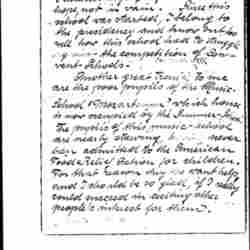 hope, not in vain. Since this
school was started, I belong to
the presidency and know but too
well how this school had to
the competition of
vent Schools.
Another great to me
are the poor pupils of the Music-
School "Mozarteum" which house
is now occupied by the Summer-
The pupils of this music-school
are nearly starving never
been admitted to the American
Food Relief Action for children.
For that reason they want help
and I should be so glad, if I really
could succeed in exciting other
people's interest for them.